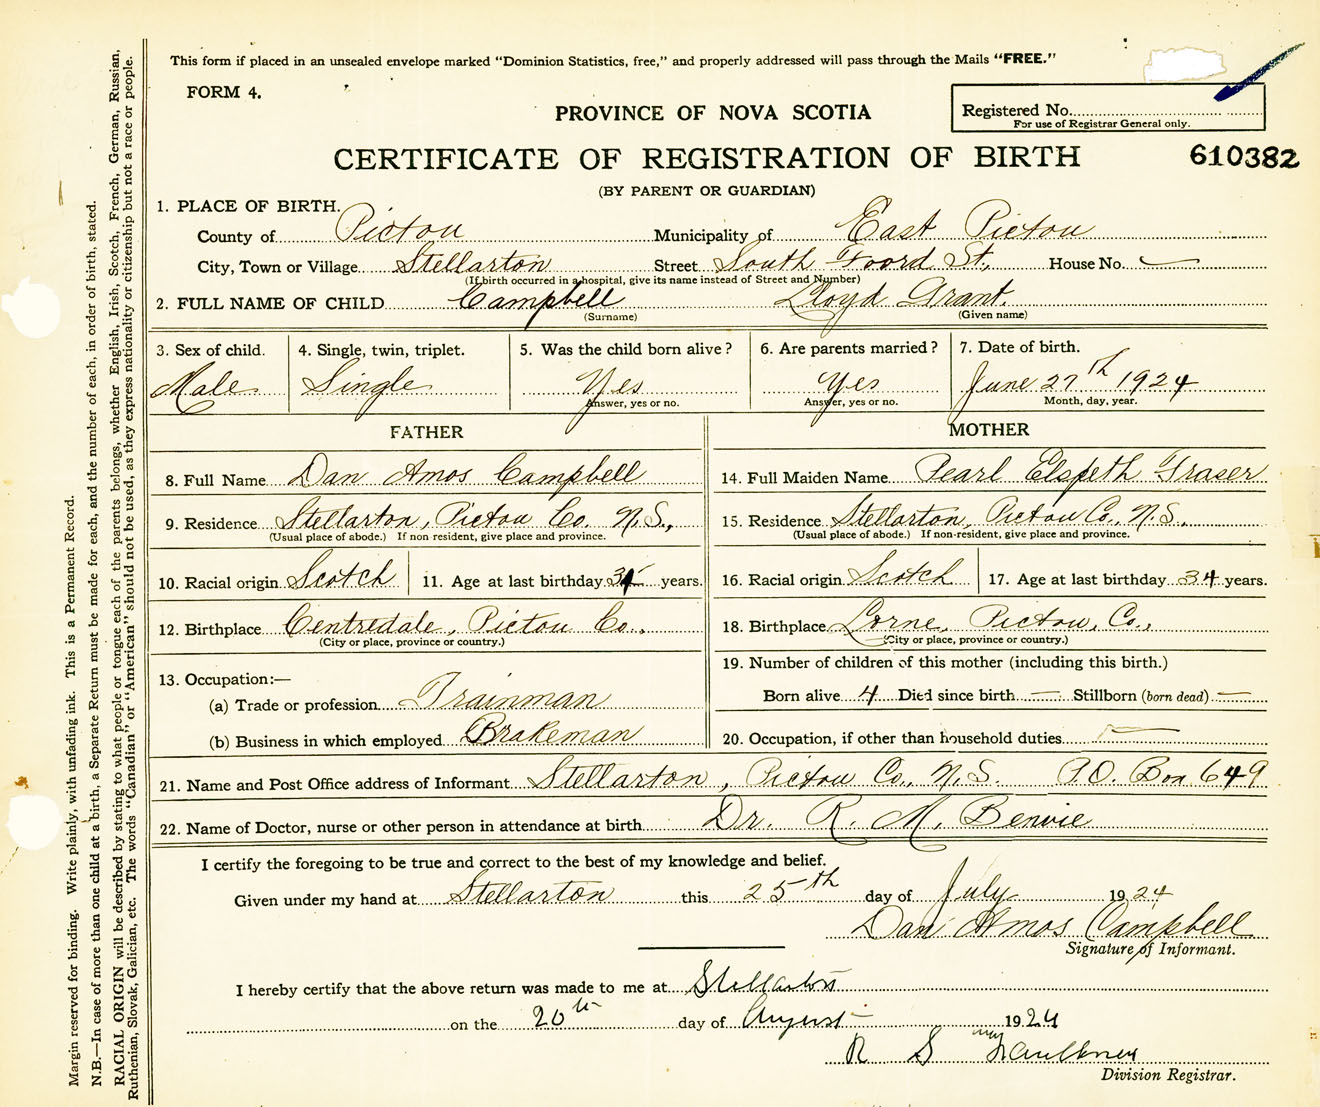 This form if placed in an unsealed envelope marked "Dominion Statistics, free," and properly addressed will pass through the Mails "FREE."
FORM 4.
PROVINCE OF NOVA SCOTIA
Registered No.
For use of Registrar General only.
CERTIFICATE OF REGISTRATION OF BIRTH
610382
(BY PARENT OR GUARDIAN)
1. PLACE OF BIRTH.
County of Pictou Municipality of East Pictou
City, Town or Village Stellarton Street South Foord St., House No. —
(If birth occurred in a hospital, give its name instead of Street and Number)
2. FULL NAME OF CHILD Campbell Lloyd Grant.
(Surname) (Given name)
3. Sex of child. 4. Single, twin, triplet. 5. Was the child born alive? 6. Are parents married? 7. Date of birth.
Male Single Yes Yes June 27th 1924
Answer, yes or no. Answer, yes or no. Month, day, year.
FATHER MOTHER
8. Full Name Dan Amos Campbell 14. Full Maiden Name Pearl Elspeth Fraser
9. Residence Stellarton, Pictou Co. N.S., 15. Residence Stellarton, Pictou Co., N.S.,
(Usual place of abode.) If non-resident, give place and province. (Usual place of abode.) If non-resident, give place and province.
10. Racial origin Scotch 11. Age at last birthday years. 16. Racial origin Scotch 17. Age at last birthday 34 years.
12. Birthplace Centredale, Pictou Co., 18. Birthplace Lorne, Pictou, Co.,
(City or place, province or country.) (City or place, province or country.)
19. Number of children of this mother (including this birth.)
13. Occupation:—
(a) Trade or profession Trainman Born alive 4 Died since birth — Stillborn (born dead) —
(b) Business in which employed Brakeman 20. Occupation, if other than household duties —
21. Name and Post Office address of Informant Stellarton, Pictou Co., N.S. P.O. Box 649
22. Name of Doctor, nurse or other person in attendance at birth Dr. R. M. Benvie
I certify the foregoing to be true and correct to the best of my knowledge and belief.
Given under my hand at Stellarton this 25th day of July 1924
Dan Amos Campbell
Signature of Informant.
I hereby certify that the above return was made to me at Stellarton
on the 20th day of August 1924
R S Faulkner
Division Registrar.
Margin reserved for binding. Write plainly, with unfading ink. This is a Permanent Record.
N.B.—In case of more than one child at a birth, a Separate Return must be made for each, and the number of each, in order of birth, stated.
RACIAL ORIGIN will be described by stating to what people or tongue each of the parents belongs, whether English, Irish, Scotch, French, German, Russian,
Ruthenian, Slovak, Galician, etc. The words "Canadian" or "American" should not be used, as they express nationality or citizenship but not a race or people.